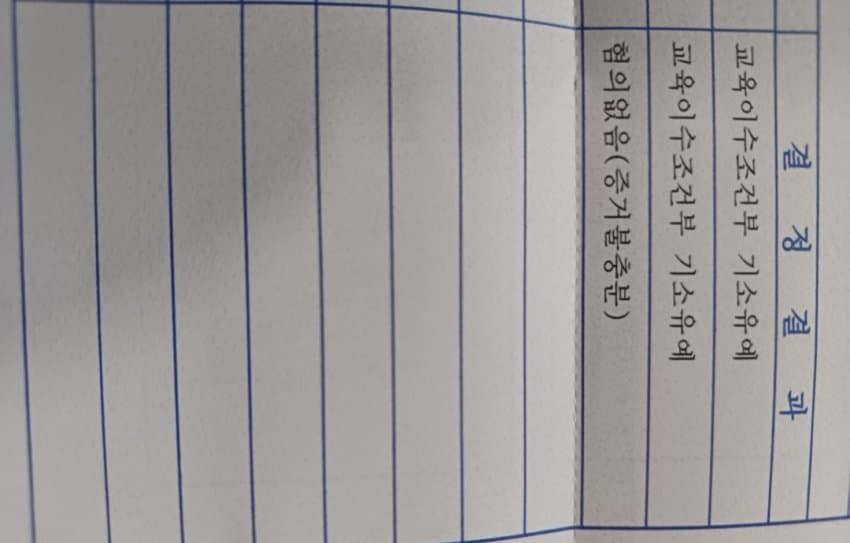 결 정 결 과
교육이수조건부 기소유예
교육이수조건부 기소유예
혐의없음(증거불충분)